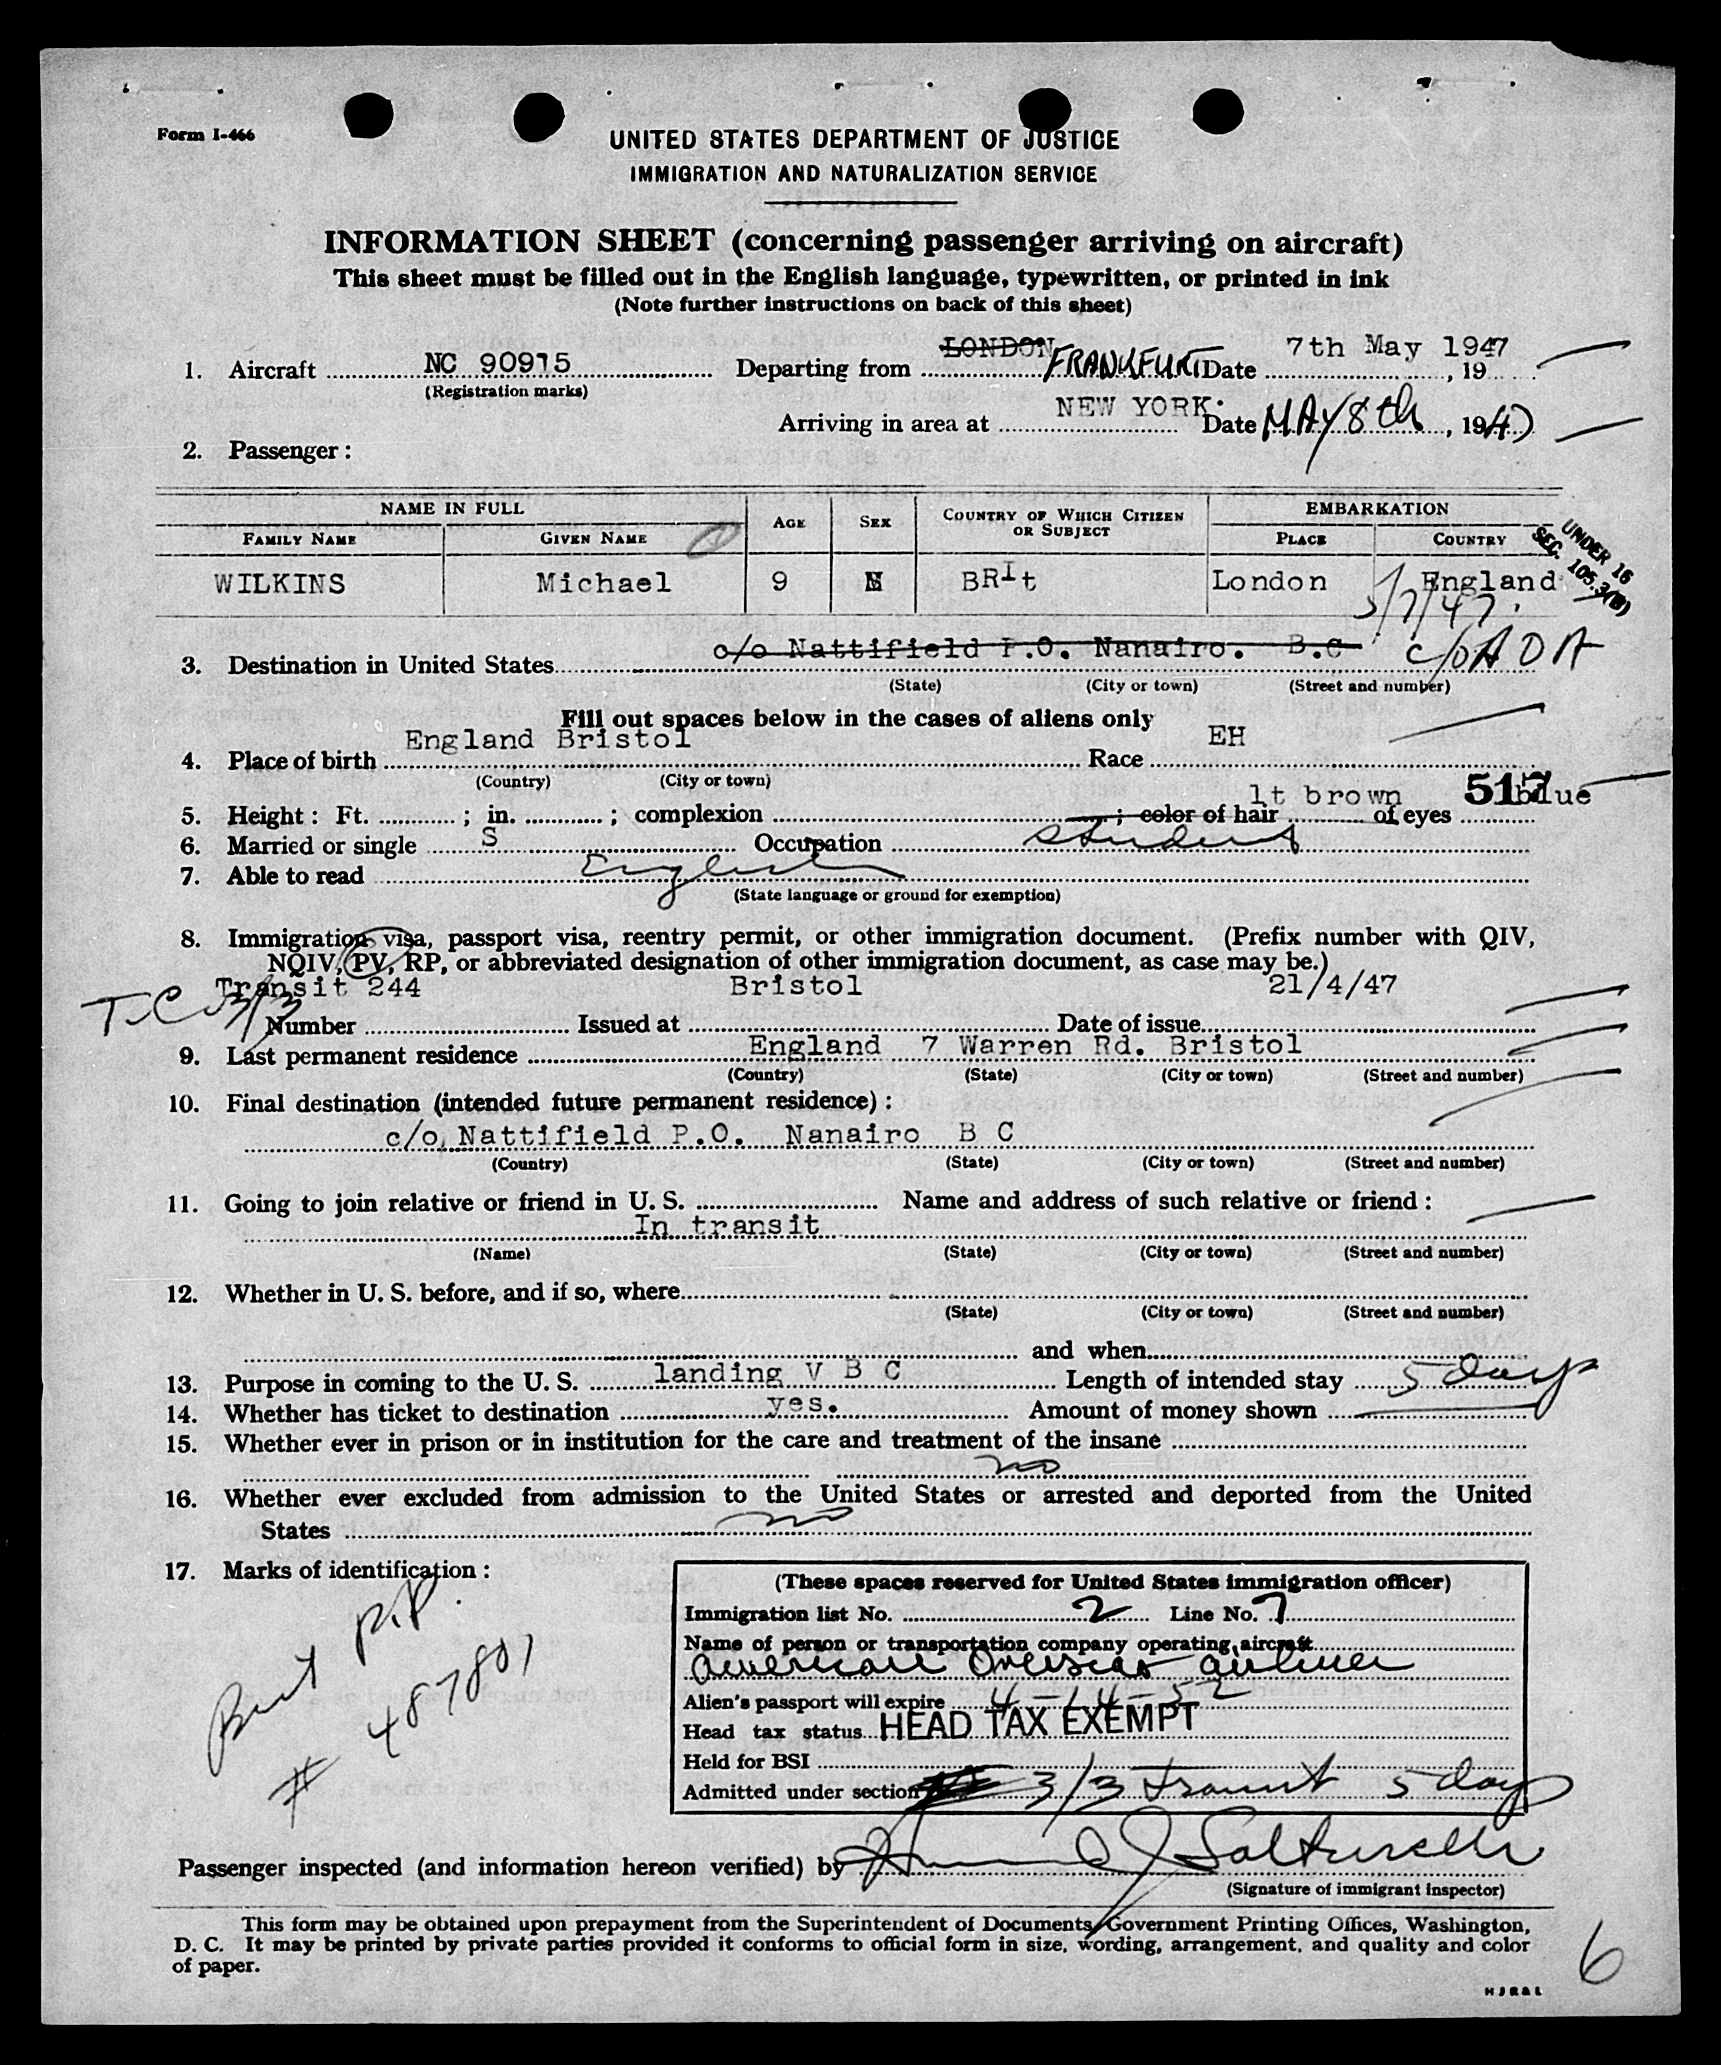 Form I-466
UNITED STATES DEPARTMENT OF JUSTICE
IMMIGRATION AND NATURALIZATION SERVICE
INFORMATION SHEET (concerning passenger arriving on aircraft)
This sheet must be filled out in the English language, typewritten, or printed in ink
(Note further instructions on back of this sheet)
1. Aircraft NC 90915 Departing from LONDON FRANKFURT Date 7th May 1947, 19
(Registration marks)
Arriving in area at NEW YORK. Date MAY 8th, 1947
2. Passenger:
NAME IN FULL AGE SEX COUNTRY OF WHICH CITIZEN OR SUBJECT EMBARKATION
FAMILY NAME GIVEN NAME PLACE COUNTRY
UNDER 16
SEC. 105.3(B)
WILKINS Michael 9 M BRIt London England
5/7/47.
3. Destination in United States c/o Nattifield P.O. Nanairo. B.C c/o A O A
(State) (City or town) (Street and number)
Fill out spaces below in the cases of aliens only
4. Place of birth England Bristol Race EH
(Country) (City or town)
517
5. Height: Ft. ; in. ; complexion ; color of hair lt brown of eyes blue
6. Married or single S Occupation student
7. Able to read English
(State language or ground for exemption)
8. Immigration visa, passport visa, reentry permit, or other immigration document. (Prefix number with QIV,
NQIV, PV, RP, or abbreviated designation of other immigration document, as case may be.)
Transit 244 Bristol 21/4/47
T.C. 3/3
Number Issued at Date of issue
9. Last permanent residence England 7 Warren Rd. Bristol
(Country) (State) (City or town) (Street and number)
10. Final destination (intended future permanent residence):
c/o, Nattifield P.O. Nanairo B C
(Country) (State) (City or town) (Street and number)
11. Going to join relative or friend in U. S. Name and address of such relative or friend:
In transit
(Name) (State) (City or town) (Street and number)
12. Whether in U. S. before, and if so, where
(State) (City or town) (Street and number)
and when
13. Purpose in coming to the U. S. landing V B C Length of intended stay 5 days
14. Whether has ticket to destination yes. Amount of money shown
15. Whether ever in prison or in institution for the care and treatment of the insane
no
16. Whether ever excluded from admission to the United States or arrested and deported from the United
States no
17. Marks of identification:
Brit P.P.
# 487801
(These spaces reserved for United States immigration officer)
Immigration list No. 2 Line No. 7
Name of person or transportation company operating aircraft
American Overseas Airlines
Alien's passport will expire 4-14-52
Head tax status HEAD TAX EXEMPT
Held for BSI
Admitted under section 3/3 transit 5 days
Passenger inspected (and information hereon verified) by
(Signature of immigrant inspector)
This form may be obtained upon prepayment from the Superintendent of Documents, Government Printing Offices, Washington,
D. C. It may be printed by private parties provided it conforms to official form in size, wording, arrangement, and quality and color
of paper.
6